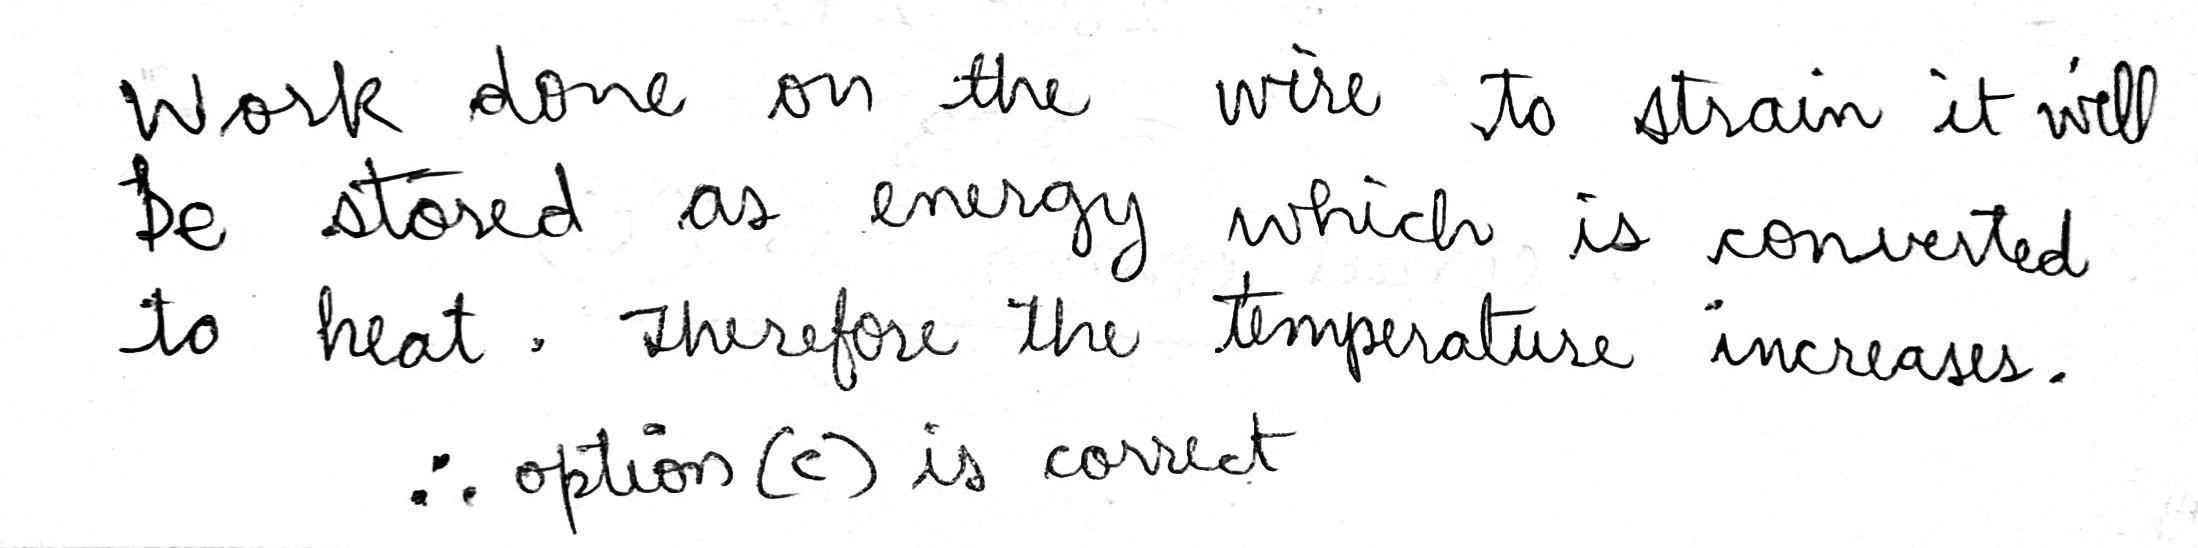 Work done on the wire to strain it will
be stored as energy which is converted
to heat. Therefore the temperature increases.
∴ option (c) is correct